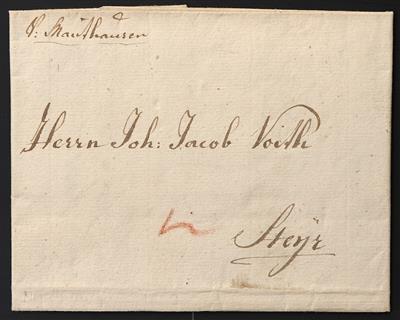 P: Mauthausen
Herrn Joh: Jacob Voith
Steÿr